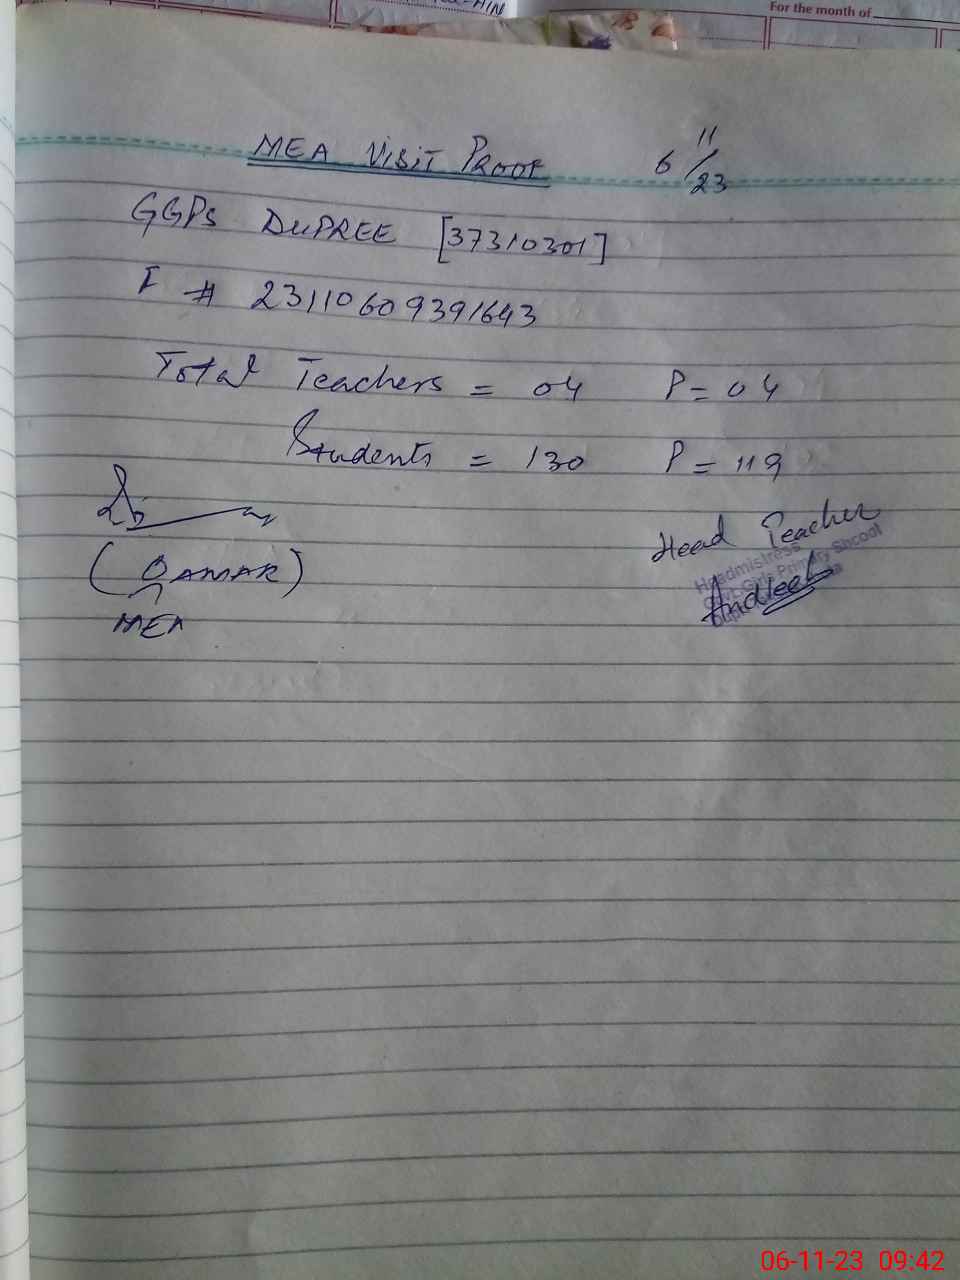 For the month of
MEA Visit Proof 6 11/23
GGPS DuPREE [37310301]
F # 23110609391643
Total Teachers = 04 P = 04
Students = 130 P = 119
(QAMAR)
MEA
Head Teacher
Headmistress
Govt. Girls Primary Shcool
Andleeb
06-11-23 09:42